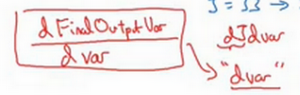 J = 3J →
d FinalOutputVar
d var
dJdvar
"dvar"